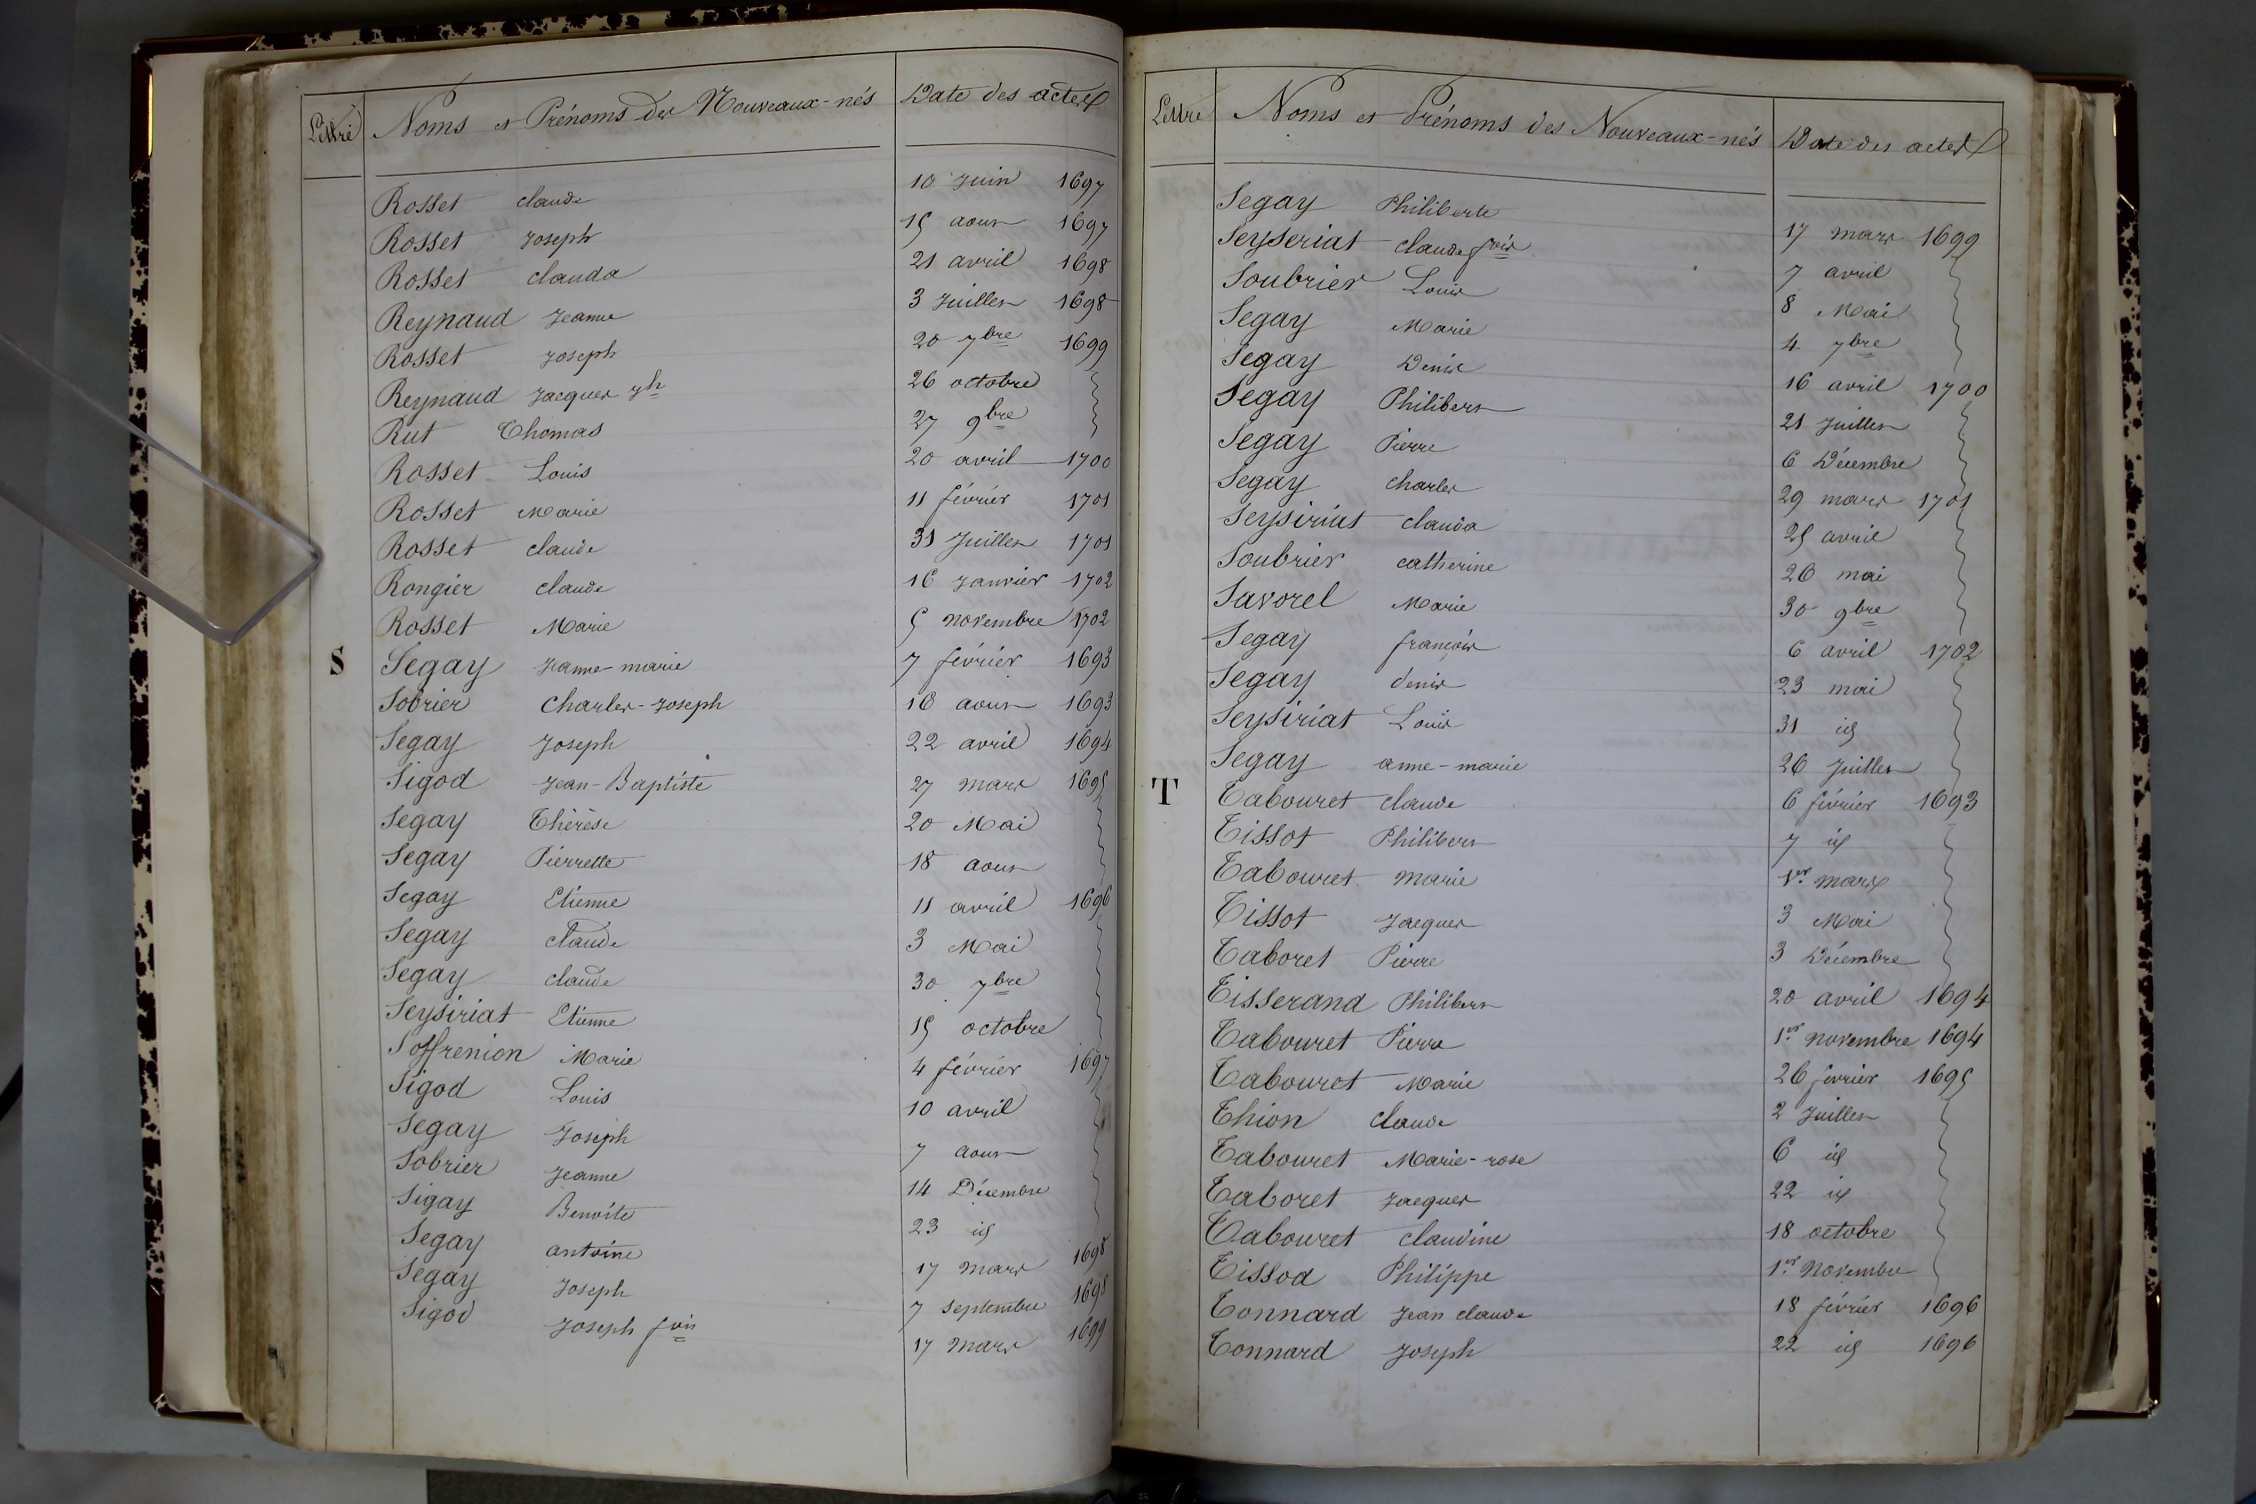 Lettre Noms et Prénoms des Nouveaux-nés Date des actes
Rosset claude 10 Juin 1697
Rosset Joseph 15 aout 1697
Rosset clauda 21 avril 1698
Reynaud Jeanne 3 Juillet 1698
Rosset Joseph 20 7bre 1699
Reynaud Jacques Jh 26 octobre
Rut Thomas 27 9bre
Rosset Louis 20 avril 1700
Rosset Marie 11 février 1701
Rosset claude 31 Juillet 1701
Rongier claude 16 Janvier 1702
Rosset Marie 5 novembre 1702
S Segay Jeanne-marie 7 février 1693
Sobrier Charles-Joseph 16 aout 1693
Segay Joseph 22 avril 1694
Sigod Jean-Baptiste 27 mars 1695
Segay Thérèse 20 Mai
Segay Pierrette 18 aout
Segay Etienne 11 avril 1696
Segay claude 3 Mai
Segay claude 30 7bre
Seysiriat Etienne 15 octobre
Soffrenion Marie 4 février 1697
Sigod Louis 10 avril
Segay Joseph 7 aout
Sobrier Jeanne 14 Décembre
Sigay Benoite 23 id
Segay antoine 17 mars 1698
Segay Joseph 7 septembre 1698
Sigod Joseph fois 17 mars 1699
Lettre Noms et Prénoms des Nouveaux-nés Date des actes
Segay Philiberte 17 mars 1699
Seyseriat claude fois 7 avril
Soubrier Louis 8 Mai
Segay Marie 4 7bre
Segay Denis 16 avril 1700
Segay Philibert 21 Juillet
Segay Pierre 6 Décembre
Segay charles 29 mars 1701
Seysiriat clauda 25 avril
Soubrier catherine 26 mai
Savorel Marie 30 9bre
Segay françois 6 avril 1702
Segay denis 23 mai
Seysiriat Louis 31 id
Segay anne-marie 26 Juillet
T Tabouret claude 6 février 1693
Tissot Philibert 7 id
Tabouret marie 1er mars
Tissot Jacques 3 Mai
Taboret Pierre 3 Décembre
Tisserand Philibert 20 avril 1694
Tabouret Pierre 1er novembre 1694
Tabouret Marie 26 fevrier 1695
Thion claude 2 Juillet
Tabouret Marie-rose 6 id
Taboret Jacques 22 id
Tabouret claudine 18 octobre
Tissod Philippe 1er Novembre
Tonnard Jean claude 18 février 1696
Tonnard Joseph 22 id 1696